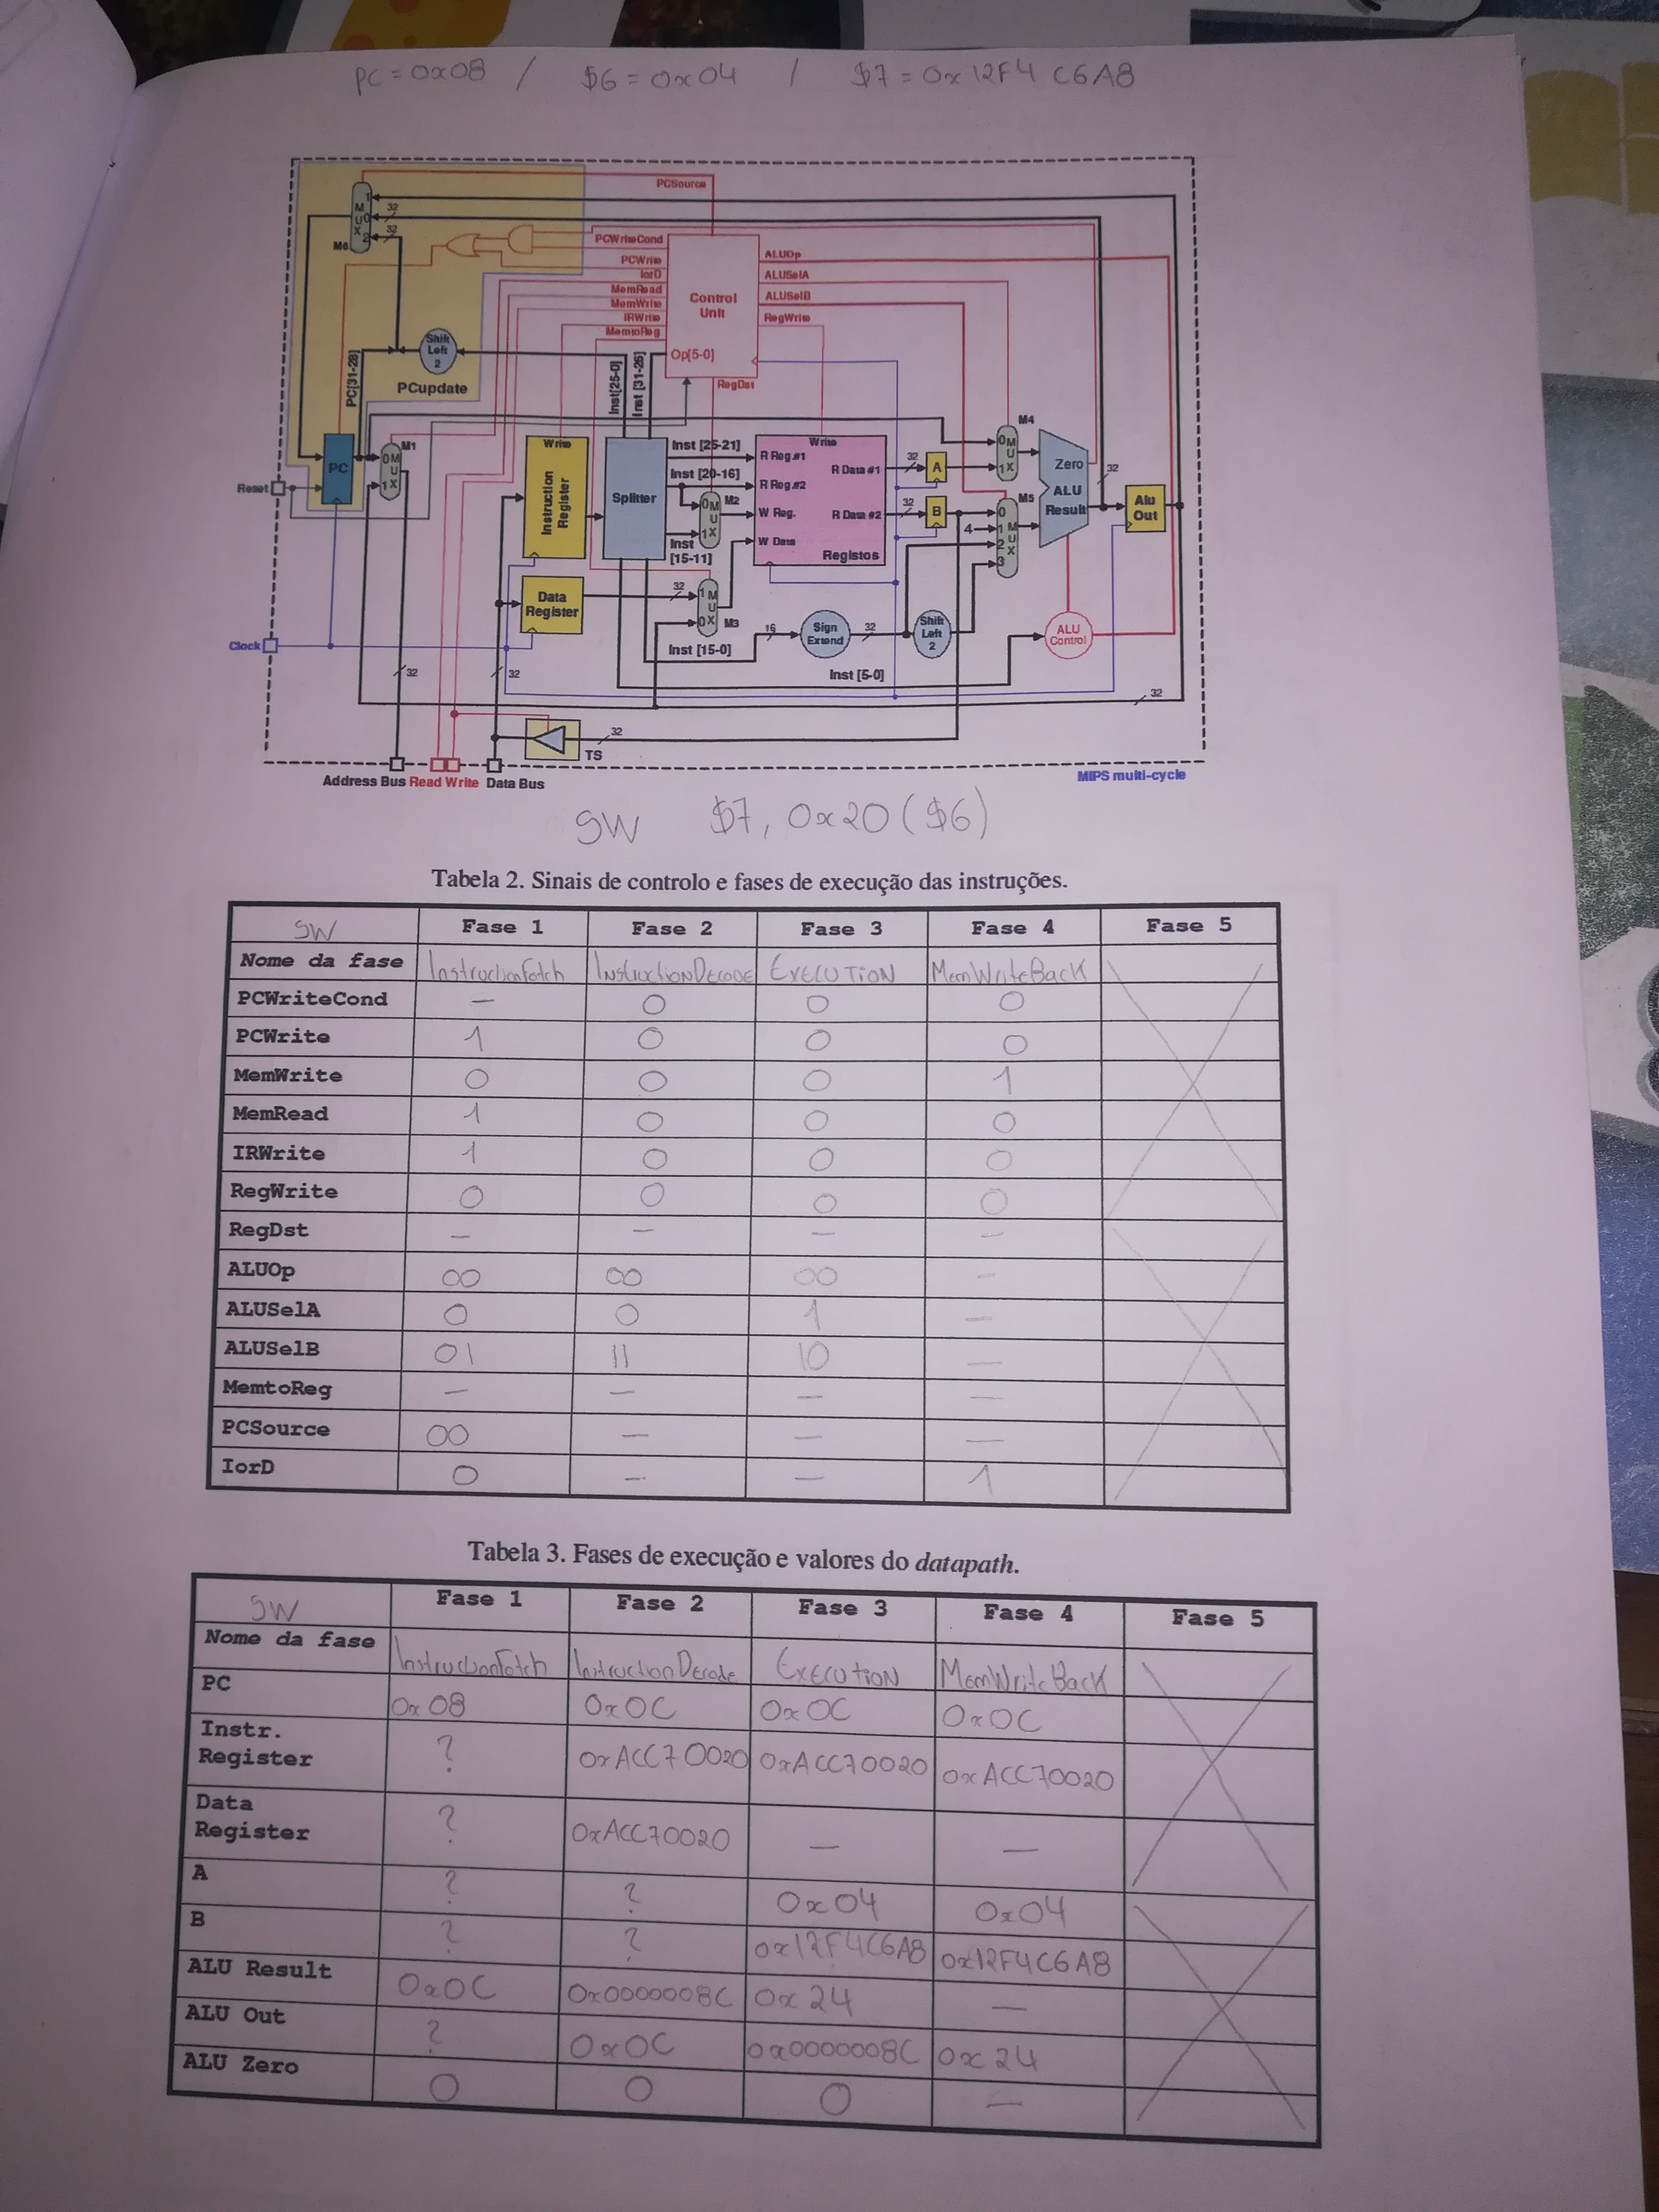 PC = 0x08 / $6 = 0x04 / $7 = 0x12F4 C6A8
PCSource
M6
MUX
1
0
2
32
32
PCWriteCond
PCWrite
IorD
MemRead
MemWrite
IRWrite
MemtoReg
Control Unit
Op[5-0]
ALUOp
ALUSelA
ALUSelB
RegWrite
RegDst
Shift Left 2
PC[31-28]
PCupdate
Inst[25-0]
Inst [31-26]
PC
M1
0 MUX 1
Reset
Write
Instruction Register
Splitter
Inst [25-21]
Inst [20-16]
Inst [15-11]
M2
0 MUX 1
Write
R Reg.#1
R Reg.#2
W Reg.
W Data
R Data #1
R Data #2
Registos
32
A
32
B
M4
0 MUX 1
M5
0
4 1
2
3
MUX
Zero
ALU
Result
32
Alu Out
Data Register
32
1 MUX 0
M3
Inst [15-0]
16
Sign Extend
32
Shift Left 2
ALU Control
Inst [5-0]
Clock
32
32
32
32
TS
Address Bus Read Write Data Bus
MIPS multi-cycle
SW $7, 0x20 ($6)
Tabela 2. Sinais de controlo e fases de execução das instruções.
SW Fase 1 Fase 2 Fase 3 Fase 4 Fase 5
Nome da fase InstructionFetch InstructionDecode Execution MemWriteBack
PCWriteCond — 0 0 0
PCWrite 1 0 0 0
MemWrite 0 0 0 1
MemRead 1 0 0 0
IRWrite 1 0 0 0
RegWrite 0 0 0 0
RegDst — — — —
ALUOp 00 00 00 —
ALUSelA 0 0 1 —
ALUSelB 01 11 10 —
MemtoReg — — — —
PCSource 00 — — —
IorD 0 — — 1
Tabela 3. Fases de execução e valores do datapath.
SW Fase 1 Fase 2 Fase 3 Fase 4 Fase 5
Nome da fase InstructionFetch InstructionDecode Execution MemWriteBack
PC 0x08 0x0C 0x0C 0x0C
Instr. Register ? 0xACC70020 0xACC70020 0xACC70020
Data Register ? 0xACC70020 — —
A ? ? 0x04 0x04
B ? ? 0x12F4C6A8 0x12F4C6A8
ALU Result 0x0C 0x0000008C 0x24 —
ALU Out ? 0x0C 0x0000008C 0x24
ALU Zero 0 0 0 —